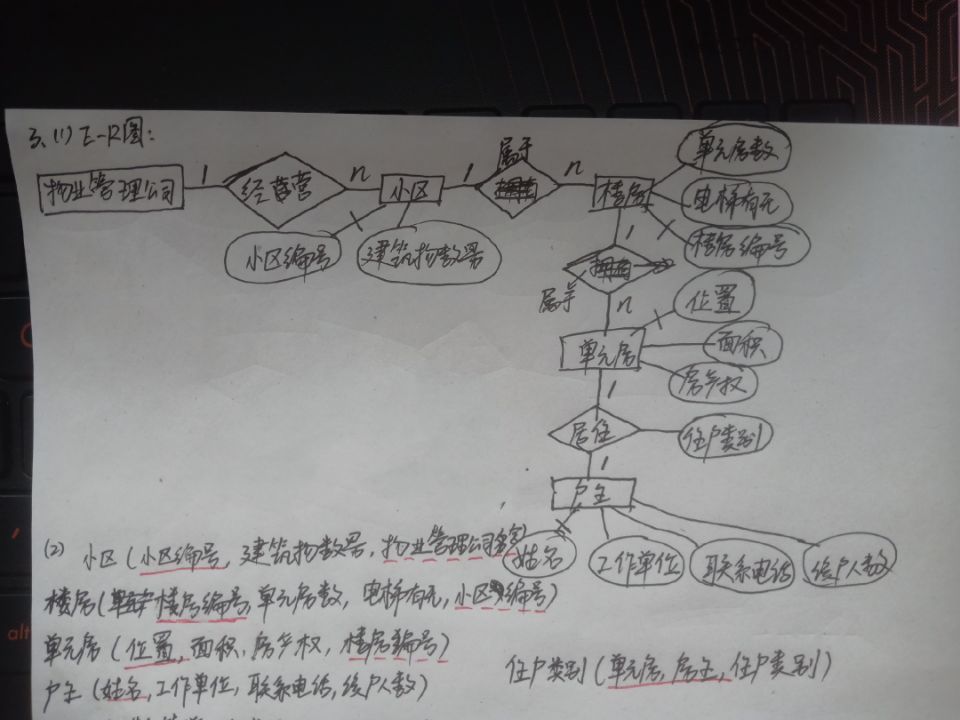 3、(1) E-R图:
物业管理公司 1 经营 n 小区 1 属于 n 楼房
单元房数
电梯有无
楼房编号
小区编号 建筑物数量
1
属于 n
位置
单元房
面积
房产权
1
居住 住户类别
1
户主
姓名 工作单位 联系电话 总户人数
(2) 小区(小区编号,建筑物数量,物业管理公司名称)
楼房(楼房编号,单元房数,电梯有无,小区编号)
单元房(位置,面积,房产权,楼房编号)
户主(姓名,工作单位,联系电话,总户人数)
住户类别(单元房,房主,住户类别)
alt